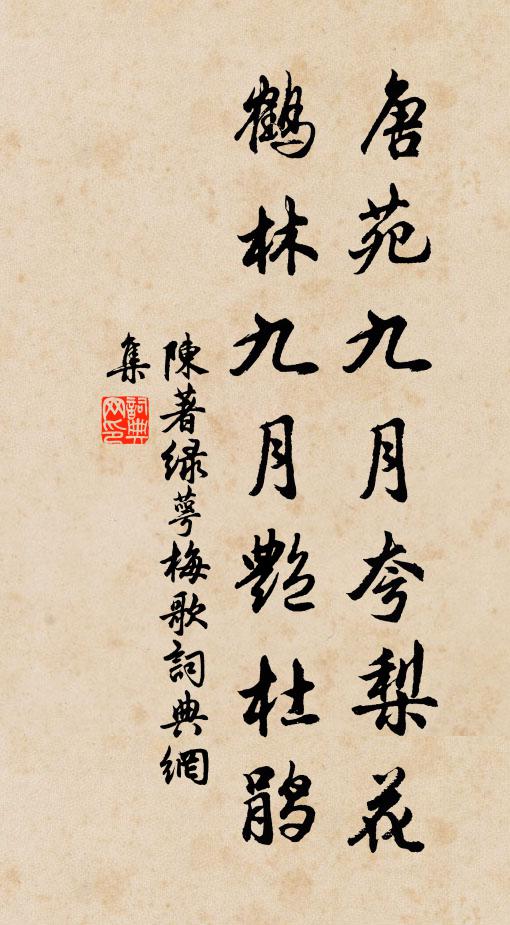 唐苑九月夸梨花
鹤林九月艳杜鹃
陳著绿萼梅歌詞典網
集
詞典网印